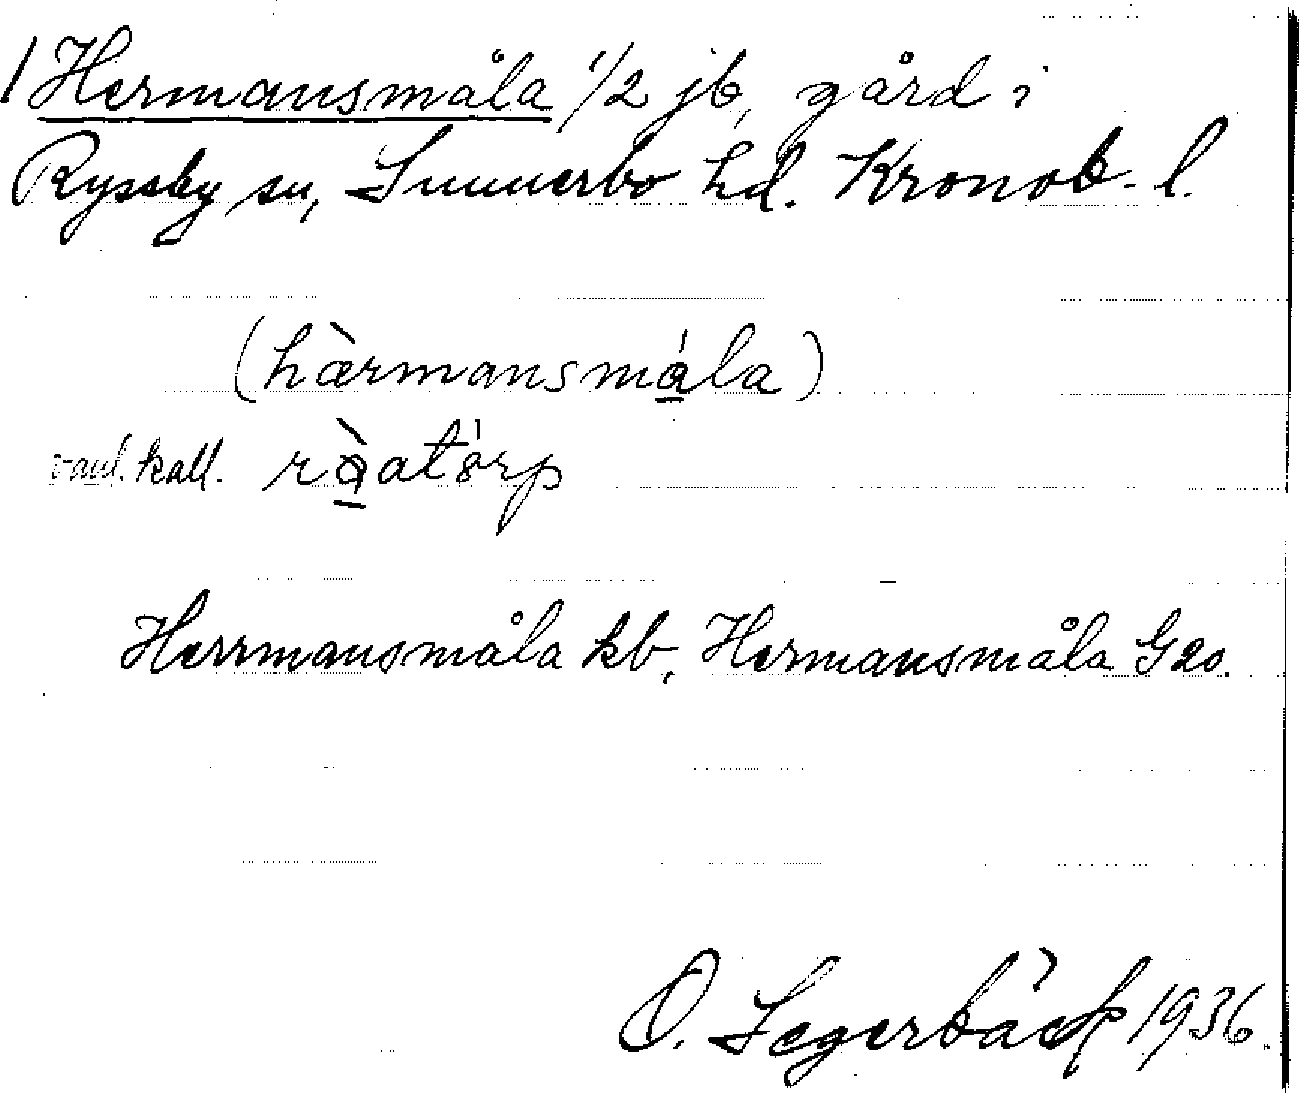 1 Hermansmåla 1/2 jb, gård i
Ryssby sn, Sunnerbo hd. Kronob. l.
(hærmansmåla)
vanl. kall. ròatórp
Herrmansmåla kb, Hermansmåla G20.
O. Segerbäck 1936.